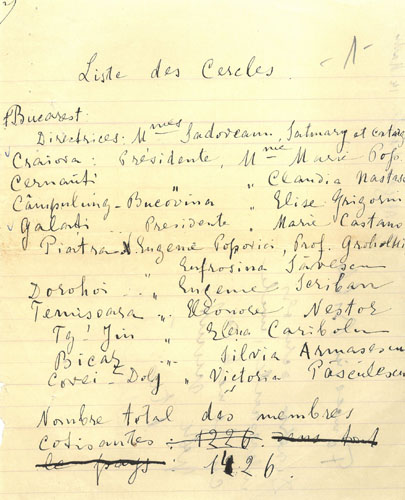 -1-
Liste des Cercles.
Bucarest:
Directrices: Mmes Sadoveanu, Satmary et
Craiova: Présidente, Mme Marie Pop.
Cernăuti " " Claudia Nastas
Câmpulung-Bucovina " Elise Grigorin
Galati Présidente " Marie Castano
Piatra N Eugenie Popovici, Prof.
Eufrosina Săvescu
Dorohoi " " Eugénie Scriban
Temisoara " " Eléonore Nestor
Tg' Jiu " Elena
Bicaz " " Silvia Armasescu
Covei-Dolj " Victoria Păsculescu
Nombre total des membres
cotisantes: 1226. dans tout
le pays: 1426.